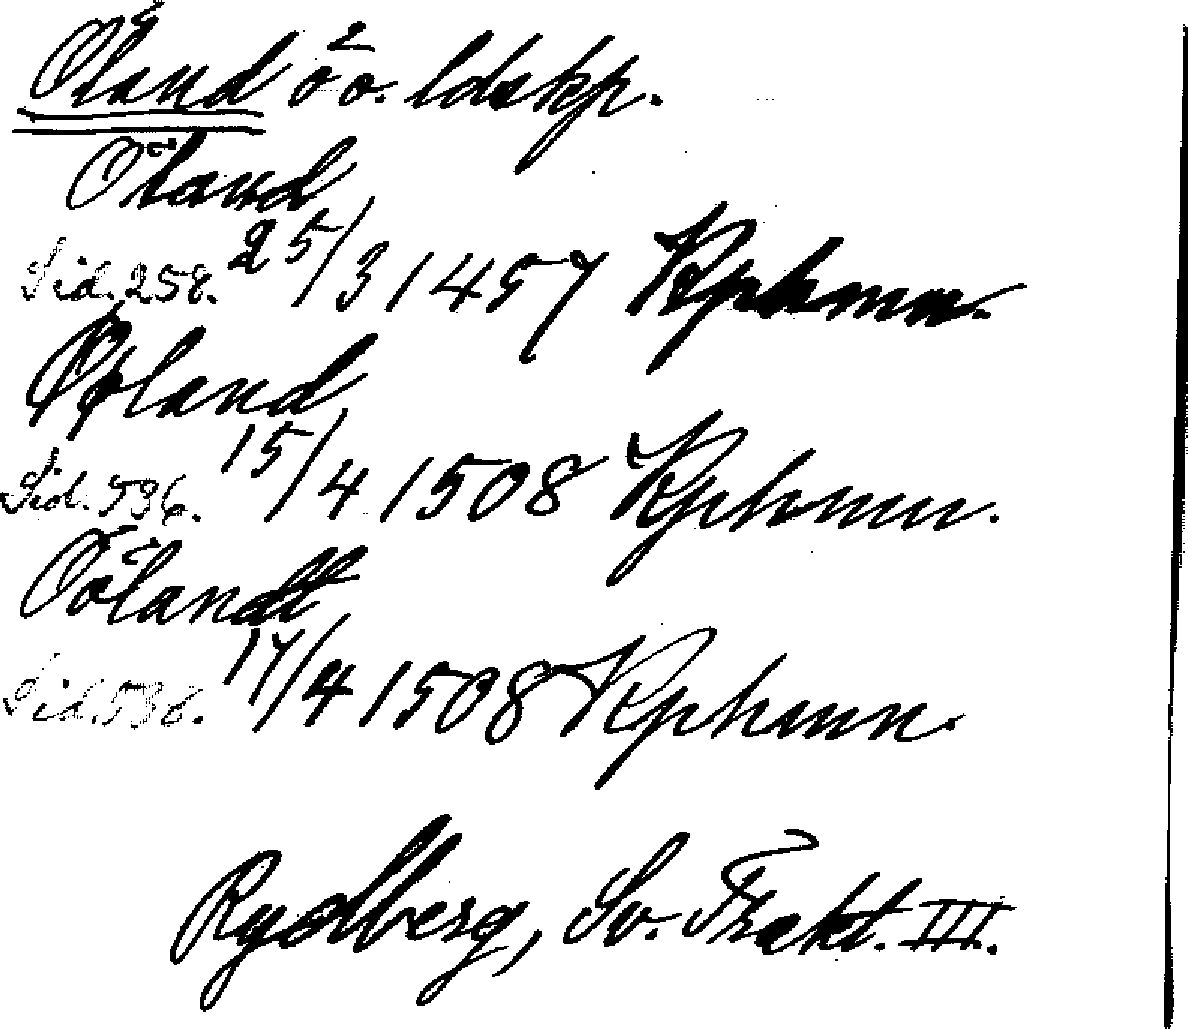 Öland ö o. ldskp.
Öland
Sid. 258. 25/3 1457 Kphmn.
Øøland
Sid. 536. 15/4 1508 Kphmn.
Öölandt
Sid. 538. 17/4 1508 Kphmn.
Rydberg, Sv. Trakt. III.